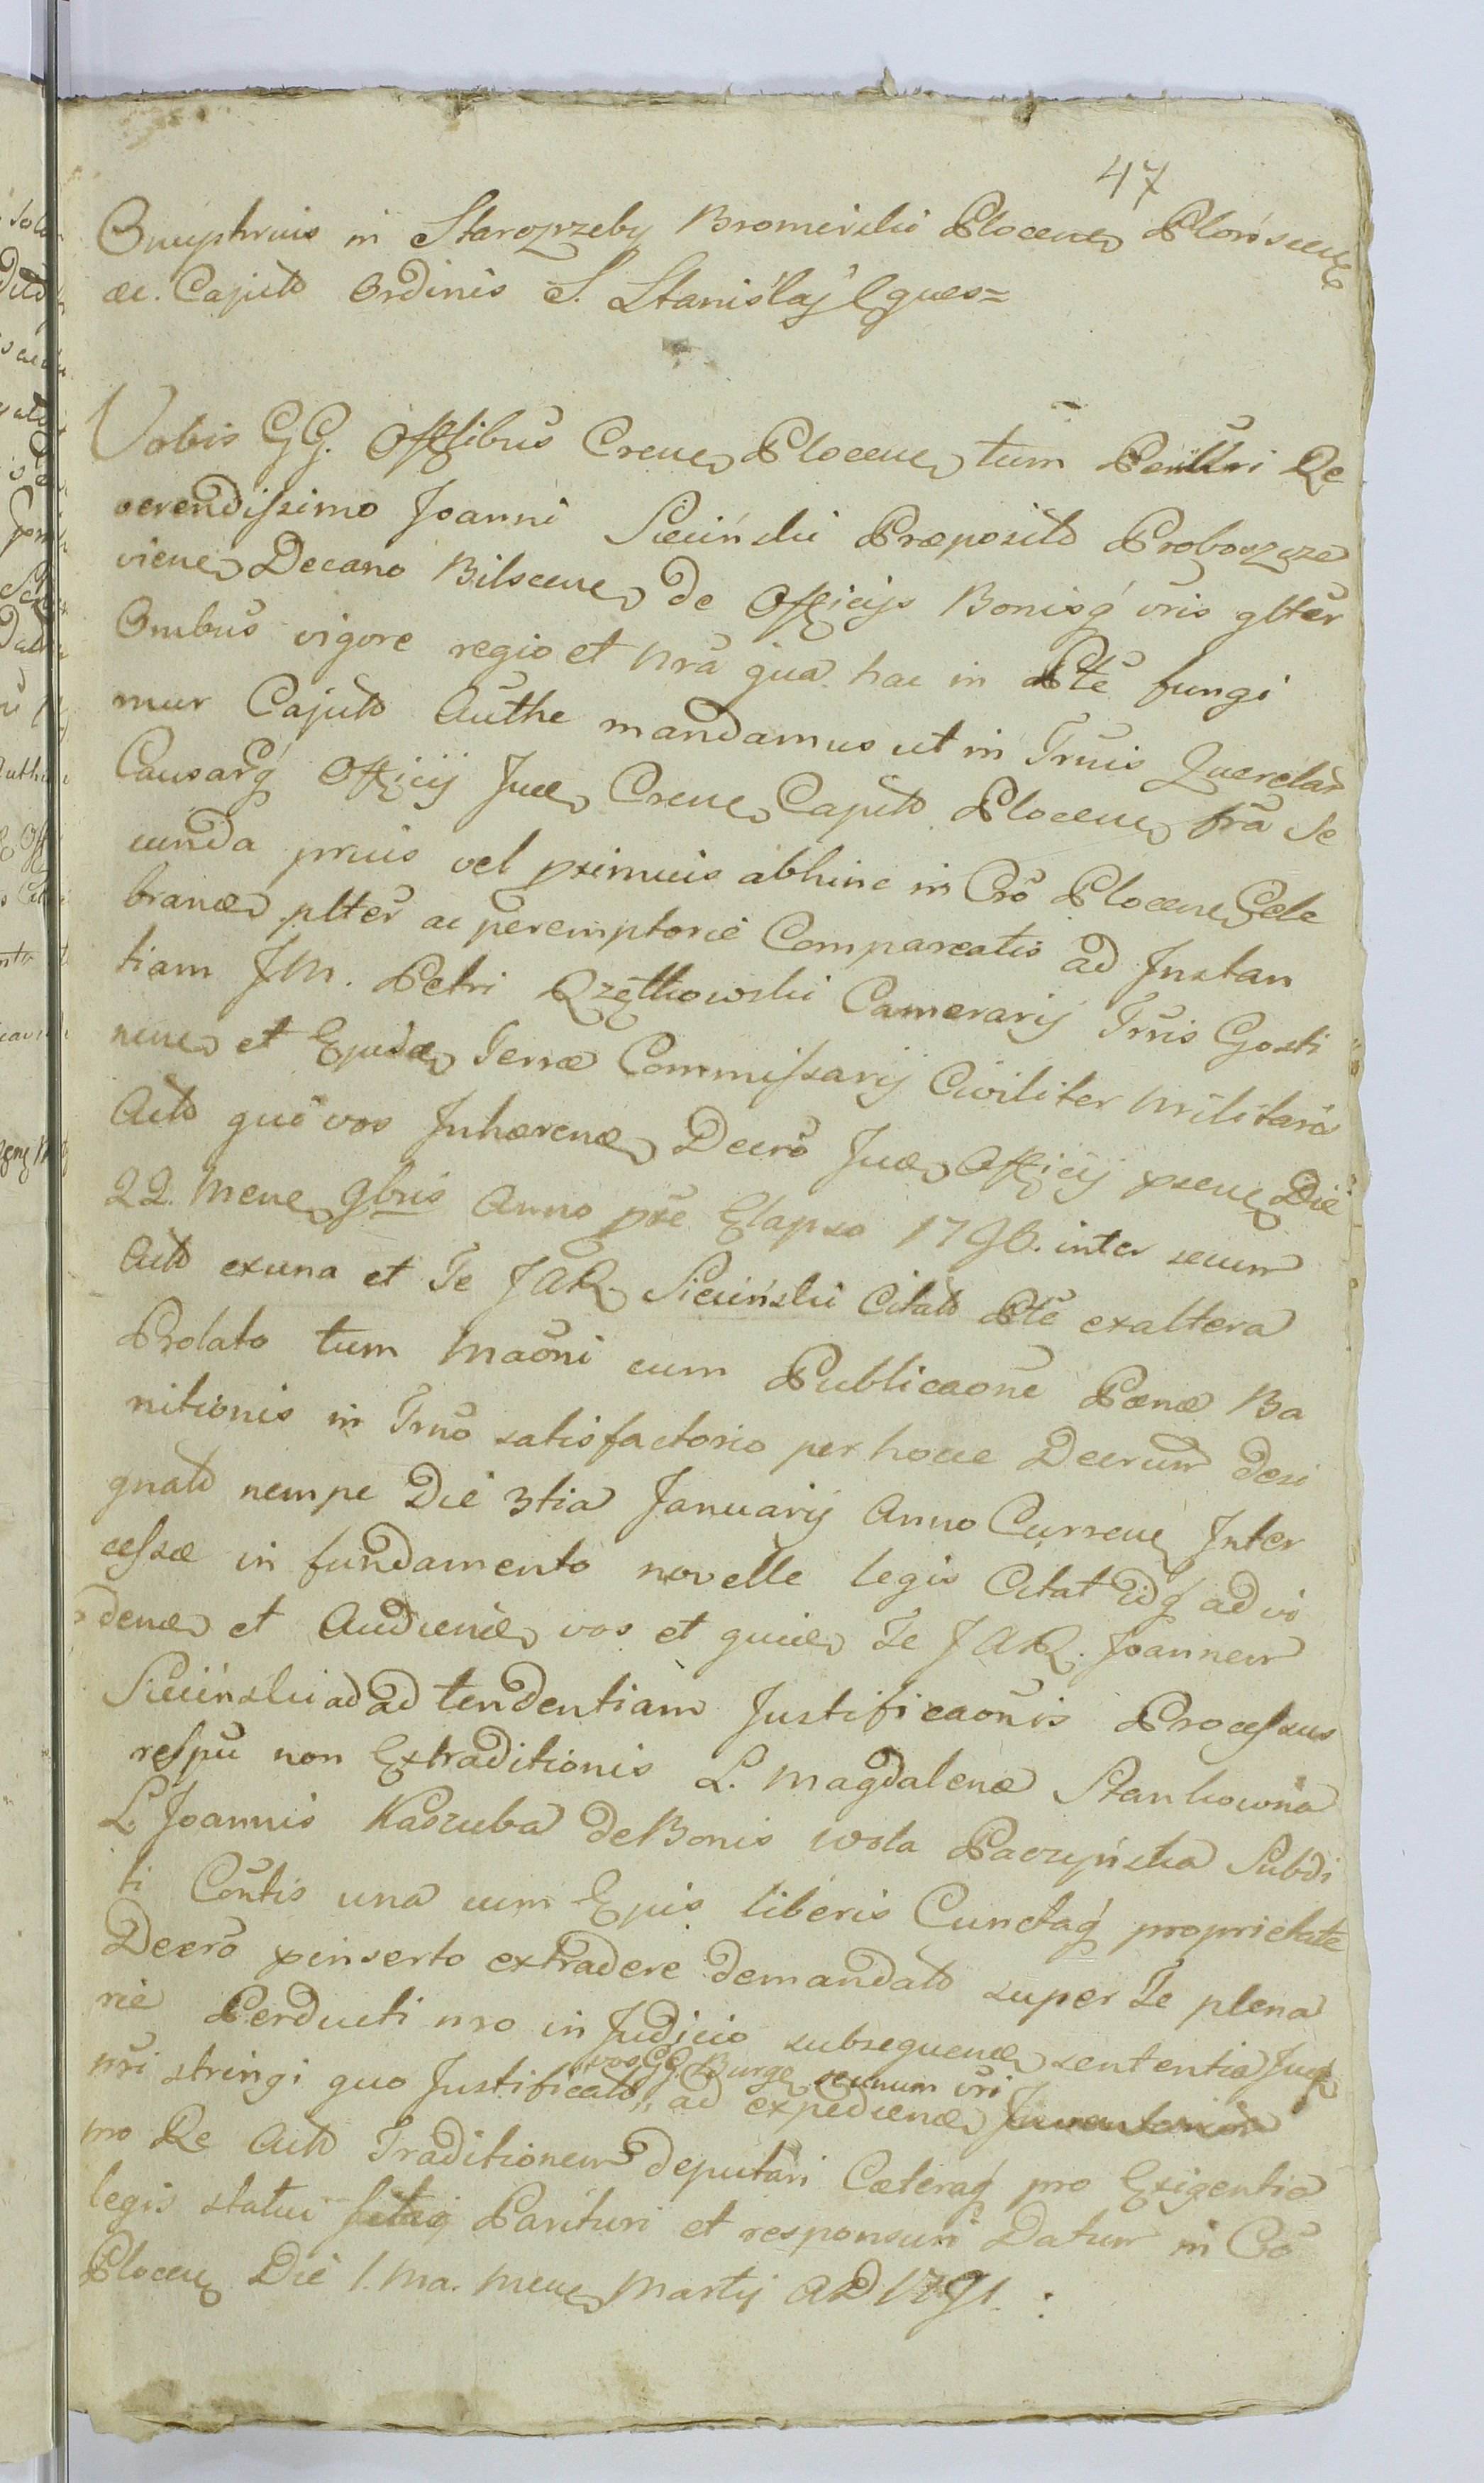 47
Onuphrius in Starozrzeby Bromirski Plocen Plonscen
ac. Capīto Ordinis S. Stanislaj Eques=
Vobis GG. Offībus Cren Plocen tum Perillri Re
verendissimo Joanni Siciński Præposito Proboszcze
vien Decano Bilscen de Officijs Bonisq́ vr̄is gltēr
Omībus vigore regio et nr̄a qua hac in Pte fungi
mur Capīto Authe mandamus ut in Trm̄is Querelar̄
Causarq́ Officij Jud Cren Capīto Plocen fr̄a se
cunda prius vel proximius abhinc in Crō Plocen Cele
brand pltēr ac peremptorie Compareatis ad Instan
tiam JM. Petri Rzętkowski Camerarij Trr̄is Gosti
nen et Ejusd Terræ Commissarij Civiliter Militaris
Acto qui vos Inhæren Decrō Jud Officij præsen Die
22. Mens 9bris Anno præ Elapso 1790. inter secum
Acto ex una et Te JAR Siciński Citato Pte ex altera
Prolato tum Maōni cum Publicaōne Pænæ Ba
nitionis in Trmō satisfactorio per hocce Decrum desi
gnato nempe Die 3tia Januarij Anno Curren Inter
cessæ in fundamento novelle legis Citat idq́ ad vi
dend et Audiend vos et quide Te JAR. Joannem
Siciński ad ad tendentiam Justificaōnis Processus
respū non Extraditionis L. Magdalenæ Stankowna
L. Joannis Kaszuba de Bonis Wola Paczyńska Subdi
ti Con̄tis una cum Ejus liberis Cunctaq́ proprietate
Decrō præinserto extradere demandato super Te plena
rie Perducti nro in Judicio subsequen sententia Jud
nr̄i stringi quo Justificato, vos GG Burg secunum vr̄i ad expediend
pro Re Acto Traditionem deputari Cæteraq́ pro Exigentia
legis statui Parituri et responsuri Datum in Crō
Plocen Die 1. Ma. Mens Martij AD 1791.